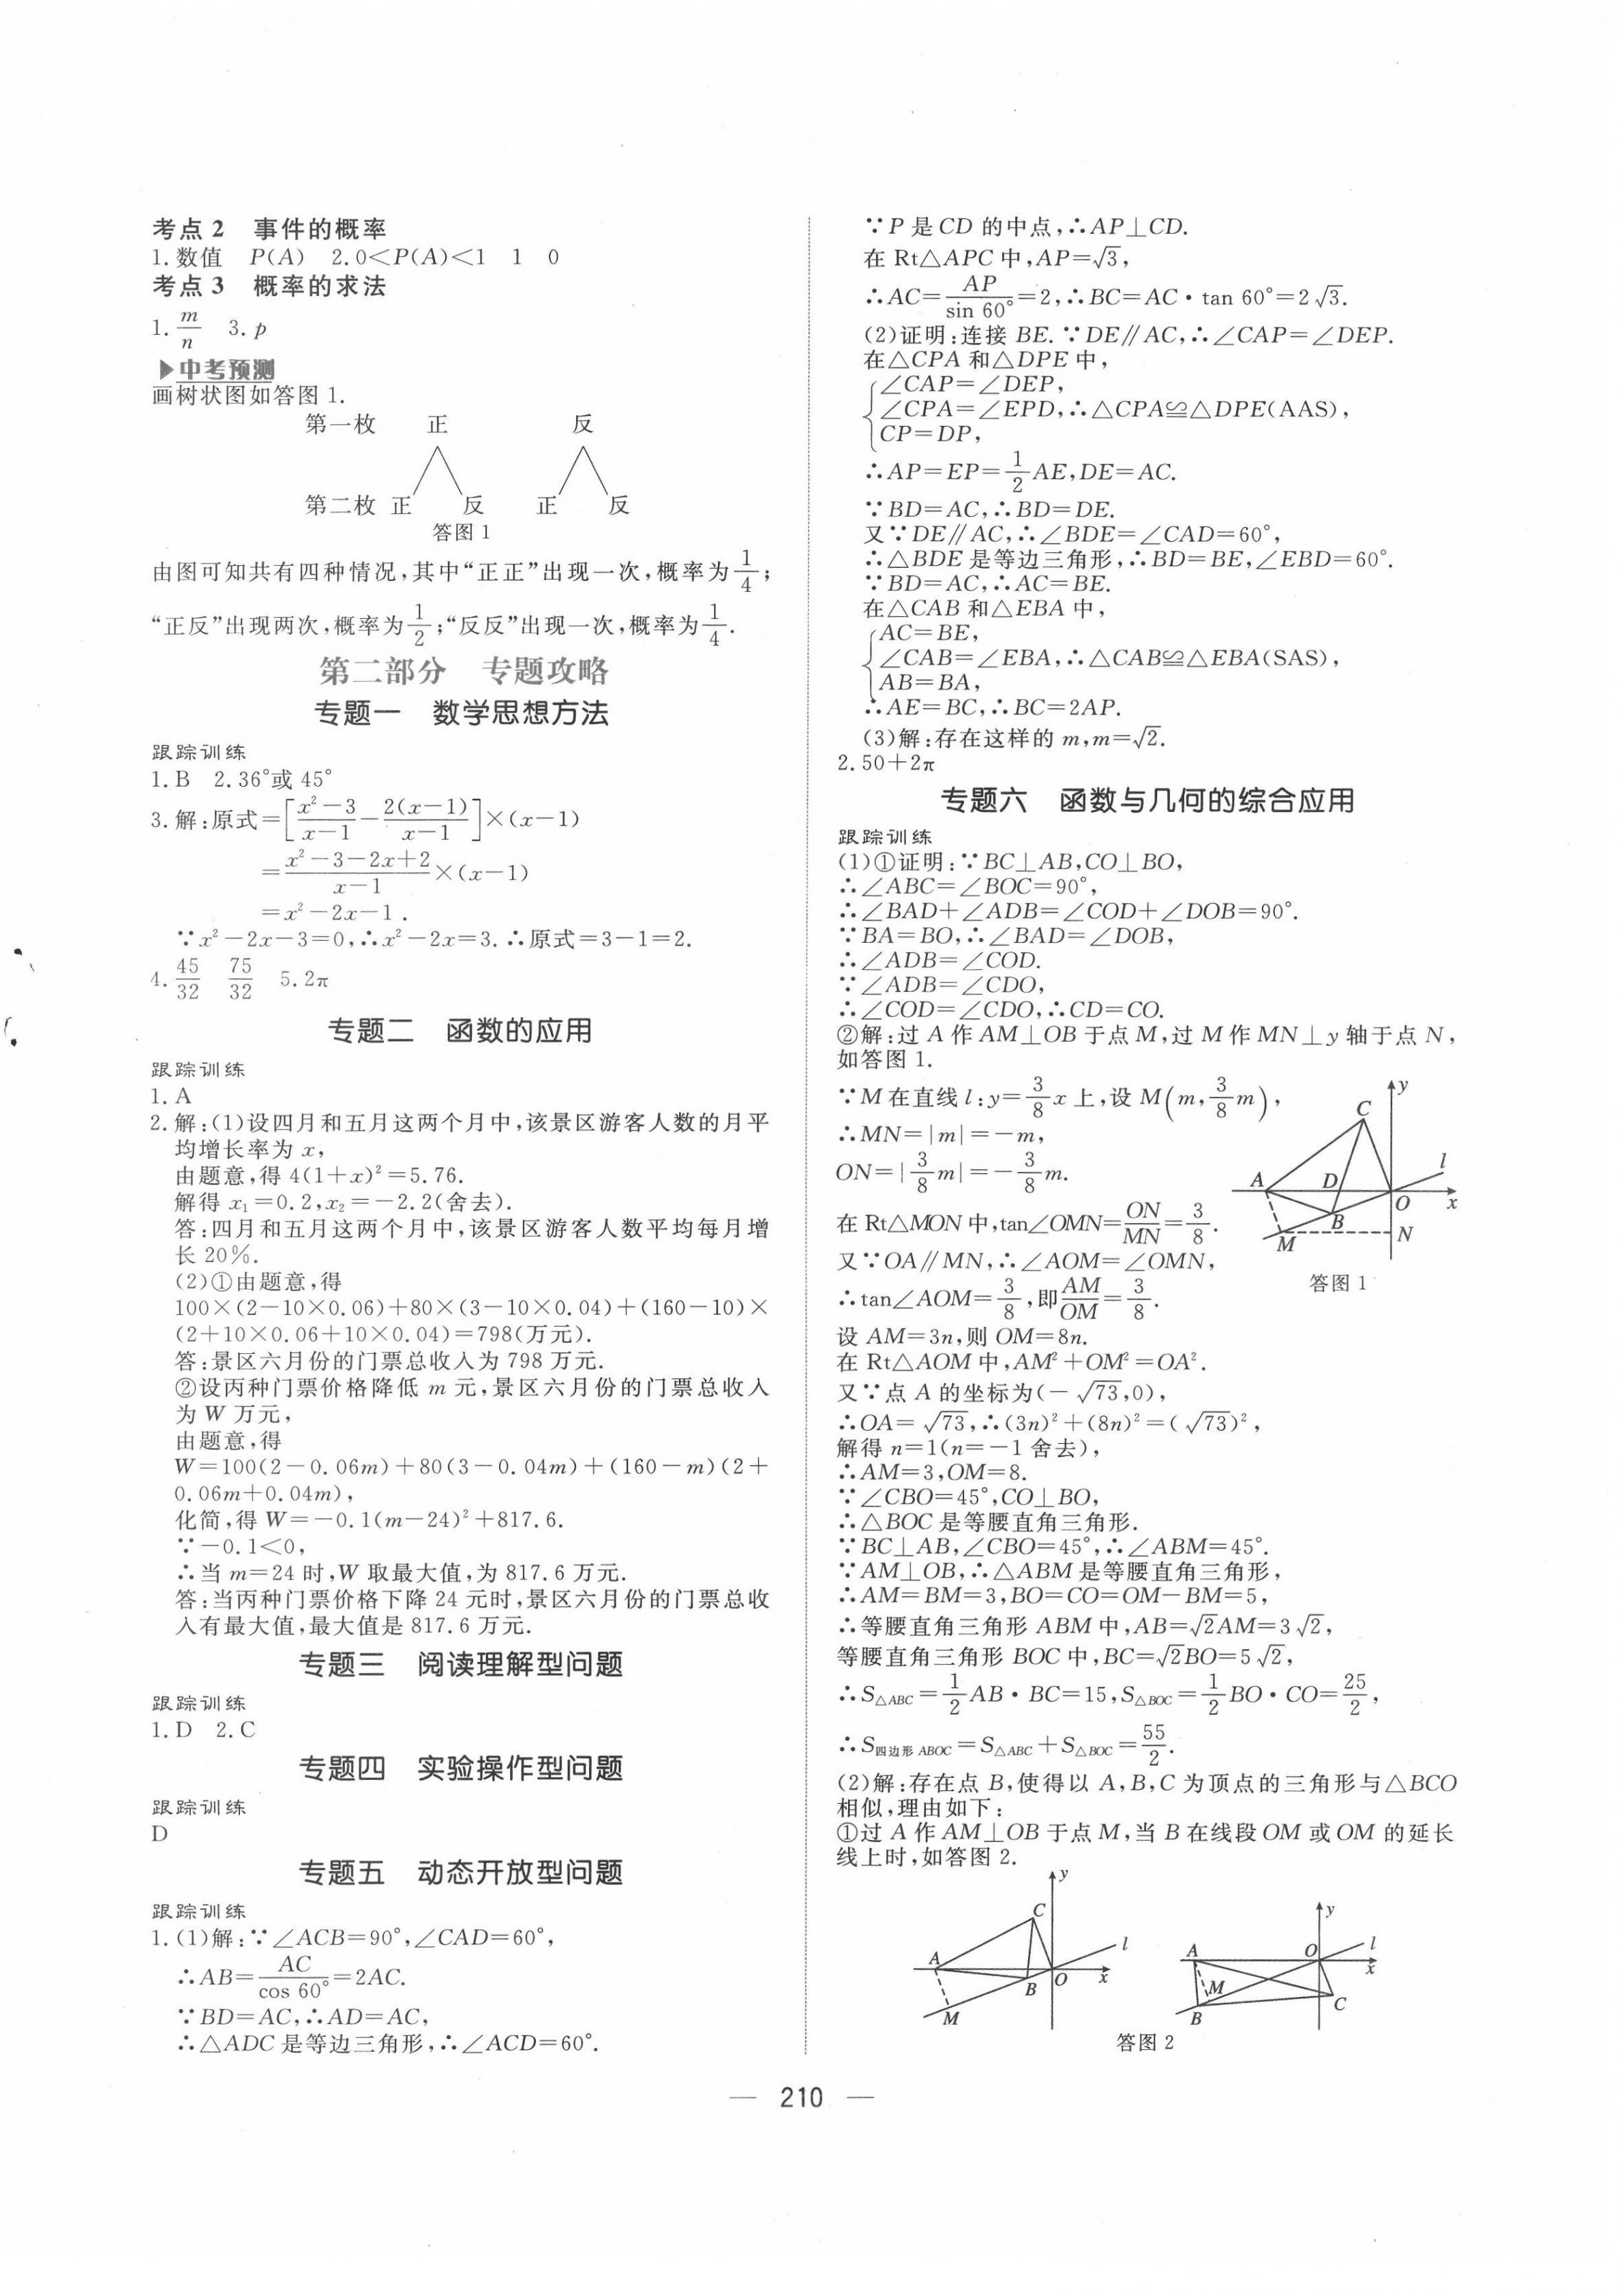 考点 2　事件的概率
1. 数值　P(A)　2. 0<P(A)<1　1　0
考点 3　概率的求法
1. m/n　3. p
▶中考预测
画树状图如答图 1.
第一枚　正　反
第二枚　正　反　正　反
答图 1
由图可知共有四种情况,其中“正正”出现一次,概率为1/4;
“正反”出现两次,概率为1/2;“反反”出现一次,概率为1/4.
第二部分　专题攻略
专题一　数学思想方法
跟踪训练
1. B　2. 36°或 45°
3. 解:原式=[(x²-3)/(x-1)-2(x-1)/(x-1)]×(x-1)
=(x²-3-2x+2)/(x-1)×(x-1)
=x²-2x-1.
∵x²-2x-3=0,∴x²-2x=3.∴原式=3-1=2.
4. 45/32　75/32　5. 2π
专题二　函数的应用
跟踪训练
1. A
2. 解:(1)设四月和五月这两个月中,该景区游客人数的月平
均增长率为 x,
由题意,得 4(1+x)²=5.76.
解得 x₁=0.2,x₂=-2.2(舍去).
答:四月和五月这两个月中,该景区游客人数平均每月增
长 20%.
(2)①由题意,得
100×(2-10×0.06)+80×(3-10×0.04)+(160-10)×
(2+10×0.06+10×0.04)=798(万元).
答:景区六月份的门票总收入为 798 万元.
②设丙种门票价格降低 m 元,景区六月份的门票总收入
为 W 万元,
由题意,得
W=100(2-0.06m)+80(3-0.04m)+(160-m)(2+
0.06m+0.04m),
化简,得 W=-0.1(m-24)²+817.6.
∵-0.1<0,
∴当 m=24 时,W 取最大值,为 817.6 万元.
答:当丙种门票价格下降 24 元时,景区六月份的门票总收
入有最大值,最大值是 817.6 万元.
专题三　阅读理解型问题
跟踪训练
1. D　2. C
专题四　实验操作型问题
跟踪训练
D
专题五　动态开放型问题
跟踪训练
1. (1)解:∵∠ACB=90°,∠CAD=60°,
∴AB=AC/cos 60°=2AC.
∵BD=AC,∴AD=AC,
∴△ADC 是等边三角形,∴∠ACD=60°.
∵P 是 CD 的中点,∴AP⊥CD.
在 Rt△APC 中,AP=√3,
∴AC=AP/sin 60°=2,∴BC=AC·tan 60°=2√3.
(2)证明:连接 BE.∵DE∥AC,∴∠CAP=∠DEP.
在△CPA 和△DPE 中,
{∠CAP=∠DEP,
∠CPA=∠EPD,∴△CPA≌△DPE(AAS),
CP=DP,
∴AP=EP=1/2AE,DE=AC.
∵BD=AC,∴BD=DE.
又∵DE∥AC,∴∠BDE=∠CAD=60°,
∴△BDE 是等边三角形,∴BD=BE,∠EBD=60°.
∵BD=AC,∴AC=BE.
在△CAB 和△EBA 中,
{AC=BE,
∠CAB=∠EBA,∴△CAB≌△EBA(SAS),
AB=BA,
∴AE=BC,∴BC=2AP.
(3)解:存在这样的 m,m=√2.
2. 50+2π
专题六　函数与几何的综合应用
跟踪训练
(1)①证明:∵BC⊥AB,CO⊥BO,
∴∠ABC=∠BOC=90°,
∴∠BAD+∠ADB=∠COD+∠DOB=90°.
∵BA=BO,∴∠BAD=∠DOB,
∴∠ADB=∠COD.
∵∠ADB=∠CDO,
∴∠COD=∠CDO,∴CD=CO.
②解:过 A 作 AM⊥OB 于点 M,过 M 作 MN⊥y 轴于点 N,
如答图 1.
∵M 在直线 l:y=3/8x 上,设 M(m,3/8m),
∴MN=|m|=-m,
ON=|3/8m|=-3/8m.
在 Rt△MON 中,tan∠OMN=ON/MN=3/8.
又∵OA∥MN,∴∠AOM=∠OMN,
∴tan∠AOM=3/8,即AM/OM=3/8.
y
C
l
A
D
O
x
B
M
N
答图 1
设 AM=3n,则 OM=8n.
在 Rt△AOM 中,AM²+OM²=OA².
又∵点 A 的坐标为(-√73,0),
∴OA=√73,∴(3n)²+(8n)²=(√73)²,
解得 n=1(n=-1 舍去),
∴AM=3,OM=8.
∵∠CBO=45°,CO⊥BO,
∴△BOC 是等腰直角三角形.
∵BC⊥AB,∠CBO=45°,∴∠ABM=45°.
∵AM⊥OB,∴△ABM 是等腰直角三角形,
∴AM=BM=3,BO=CO=OM-BM=5,
∴等腰直角三角形 ABM 中,AB=√2AM=3√2,
等腰直角三角形 BOC 中,BC=√2BO=5√2,
∴S△ABC=1/2AB·BC=15,S△BOC=1/2BO·CO=25/2,
∴S四边形 ABOC=S△ABC+S△BOC=55/2.
(2)解:存在点 B,使得以 A,B,C 为顶点的三角形与△BCO
相似,理由如下:
①过 A 作 AM⊥OB 于点 M,当 B 在线段 OM 或 OM 的延长
线上时,如答图 2.
y
C
A
l
B
O
x
M
y
A
O
l
x
M
B
C
答图 2
— 210 —